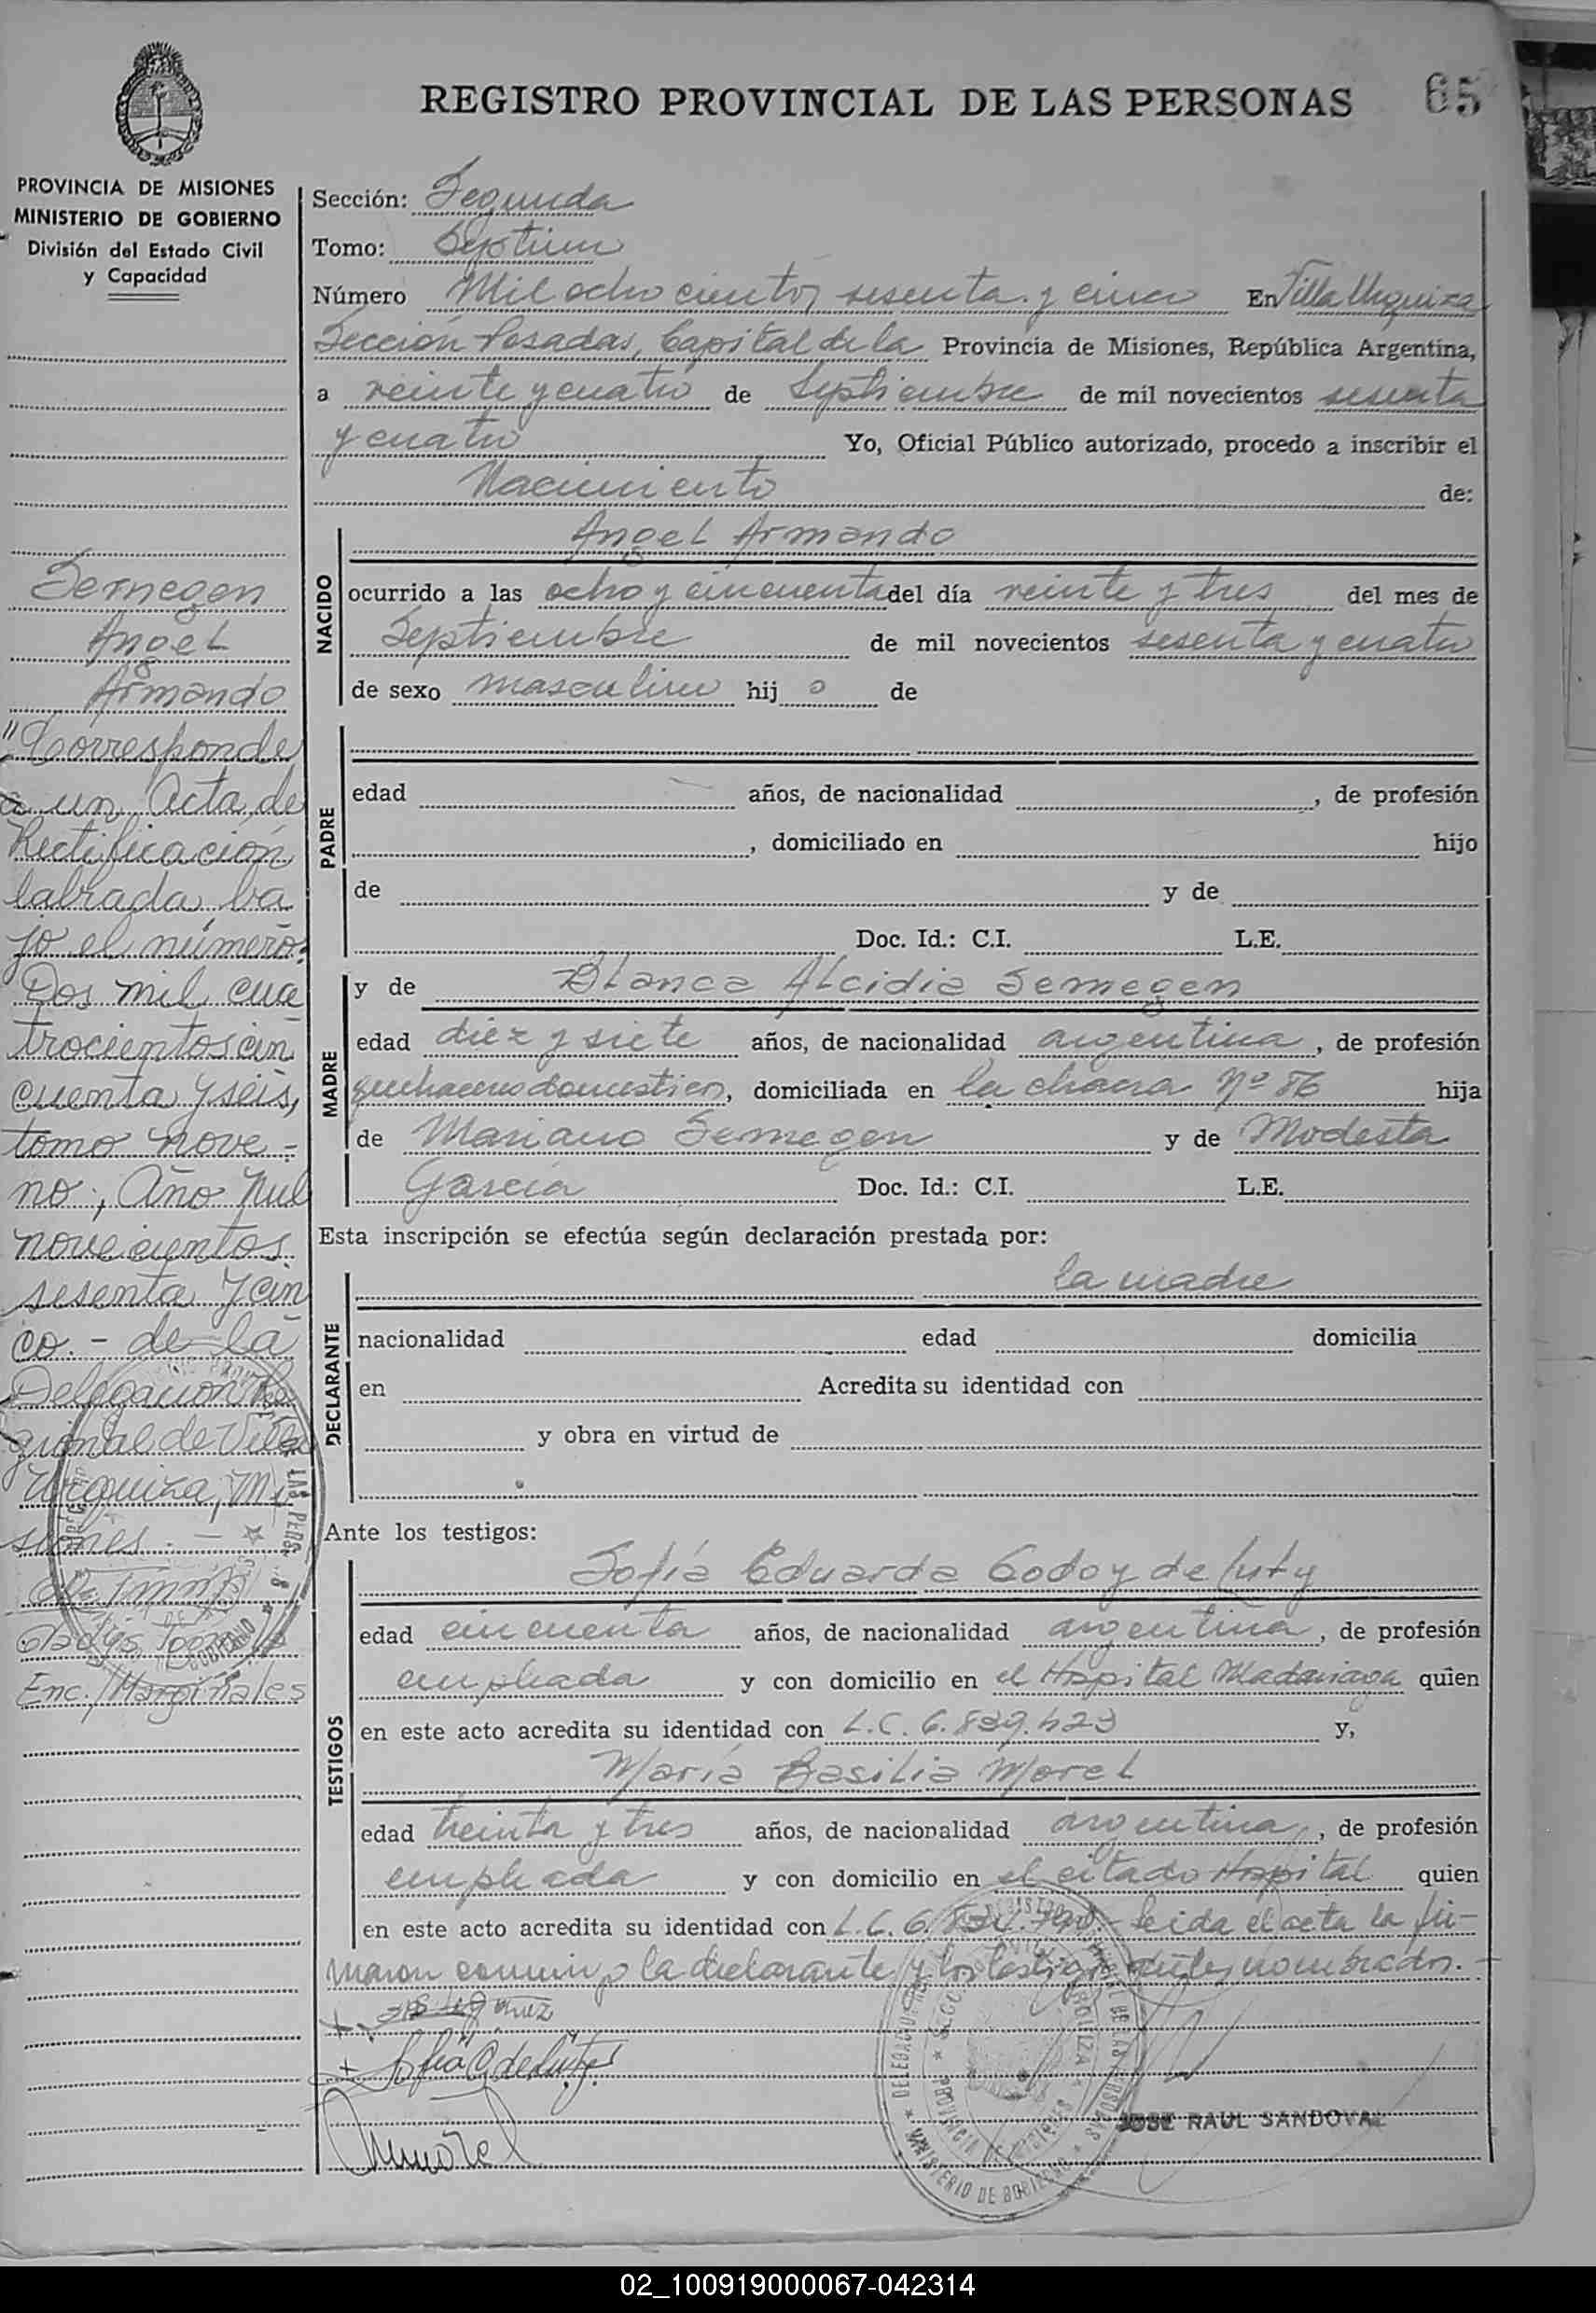 REGISTRO PROVINCIAL DE LAS PERSONAS 65
PROVINCIA DE MISIONES
MINISTERIO DE GOBIERNO
División del Estado Civil
y Capacidad
Semegen
Angel
Armando
"Corresponde
a un Acta de
Rectificación
labrada ba
jo el número:
Dos mil cua
trocientos cin
cuenta y seis,
tomo nove-
no, Año Mil
novecientos
sesenta y cin
co.- de la
Delegación Re
gional de Villa
Urquiza, Mi
siones.-
Enc. Marginales
Sección: Segunda
Tomo: Septimo
Número Mil ochocientos sesenta y cinco En Villa Urquiza
Sección Posadas, Capital de la Provincia de Misiones, República Argentina,
a veinte y cuatro de Septiembre de mil novecientos sesenta
y cuatro Yo, Oficial Público autorizado, procedo a inscribir el
Nacimiento de:
NACIDO
Angel Armando
ocurrido a las ocho y cincuenta del día veinte y tres del mes de
Septiembre de mil novecientos sesenta y cuatro
de sexo masculino hij o de
PADRE
edad años, de nacionalidad , de profesión
, domiciliado en hijo
de y de
Doc. Id.: C.I. L.E.
MADRE
y de Blanca Alcidia Semegen
edad diez y siete años, de nacionalidad argentina, de profesión
quehaceres domesticos, domiciliada en la chacra Nº 86 hija
de Mariano Semegen y de Modesta
García Doc. Id.: C.I. L.E.
Esta inscripción se efectúa según declaración prestada por:
DECLARANTE
la madre
nacionalidad edad domicilia
en Acredita su identidad con
y obra en virtud de
Ante los testigos:
TESTIGOS
Sofía Eduarda Godoy de
edad cincuenta años, de nacionalidad argentina, de profesión
empleada y con domicilio en el Hospital Madariaga quien
en este acto acredita su identidad con L.C. 6.839.423 y,
María Basilia Morel
edad treinta y tres años, de nacionalidad argentina, de profesión
empleada y con domicilio en el citado Hospital quien
en este acto acredita su identidad con L.C. 6. - Leida el acta la fir-
maron conmigo la declarante y los testigos antes nombrados.-
JOSE RAUL SANDOVAL
02_100919000067-042314